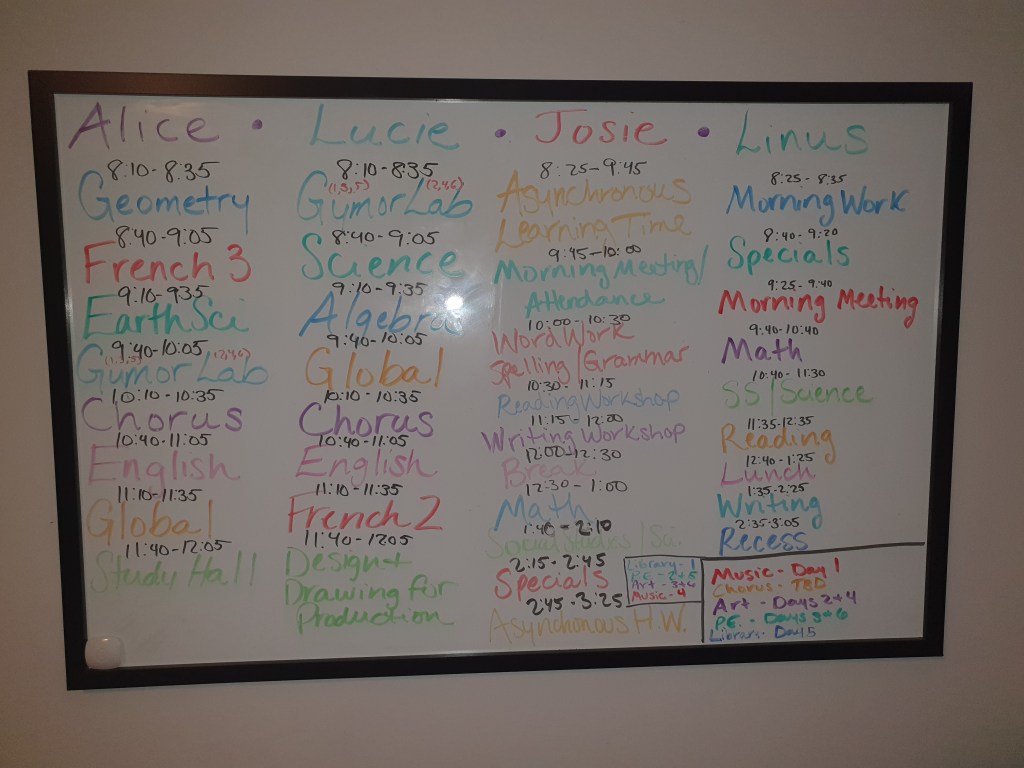 Alice • Lucie • Josie • Linus
8:10-8:35
Geometry
8:40-9:05
French 3
9:10-935
Earth Sci
9:40-10:05
(1,3,5) (2,4,6)
Gym or Lab
10:10-10:35
Chorus
10:40-11:05
English
11:10-11:35
Global
11:40-12:05
Study Hall
8:10-8:35
(1,3,5) (2,4,6)
Gym or Lab
8:40-9:05
Science
9:10-9:35
Algebra
9:40-10:05
Global
10:10-10:35
Chorus
10:40-11:05
English
11:10-11:35
French 2
11:40-1205
Design +
Drawing for
Production
8:25-9:45
Asynchronous
Learning Time
9:45-10:00
Morning Meeting/
Attendance
10:00-10:30
Word Work
Spelling/Grammar
10:30-11:15
Reading Workshop
11:15-12:00
Writing Workshop
12:00-12:30
Break
12:30-1:00
Math
1:40-2:10
Social Studies/Sci.
2:15-2:45
Specials
2:45-3:25
Asynchonous H.W.
Library-1
P.E.-2+5
Art-3+6
Music-4
8:25-8:35
Morning Work
8:40-9:20
Specials
9:25-9:40
Morning Meeting
9:40-10:40
Math
10:40-11:30
SS/Science
11:35-12:35
Reading
12:40-1:25
Lunch
1:35-2:25
Writing
2:35-3:05
Recess
Music-Day 1
Chorus-TBD
Art-Days 2+4
P.E.-Days 3+6
Library-Day 5